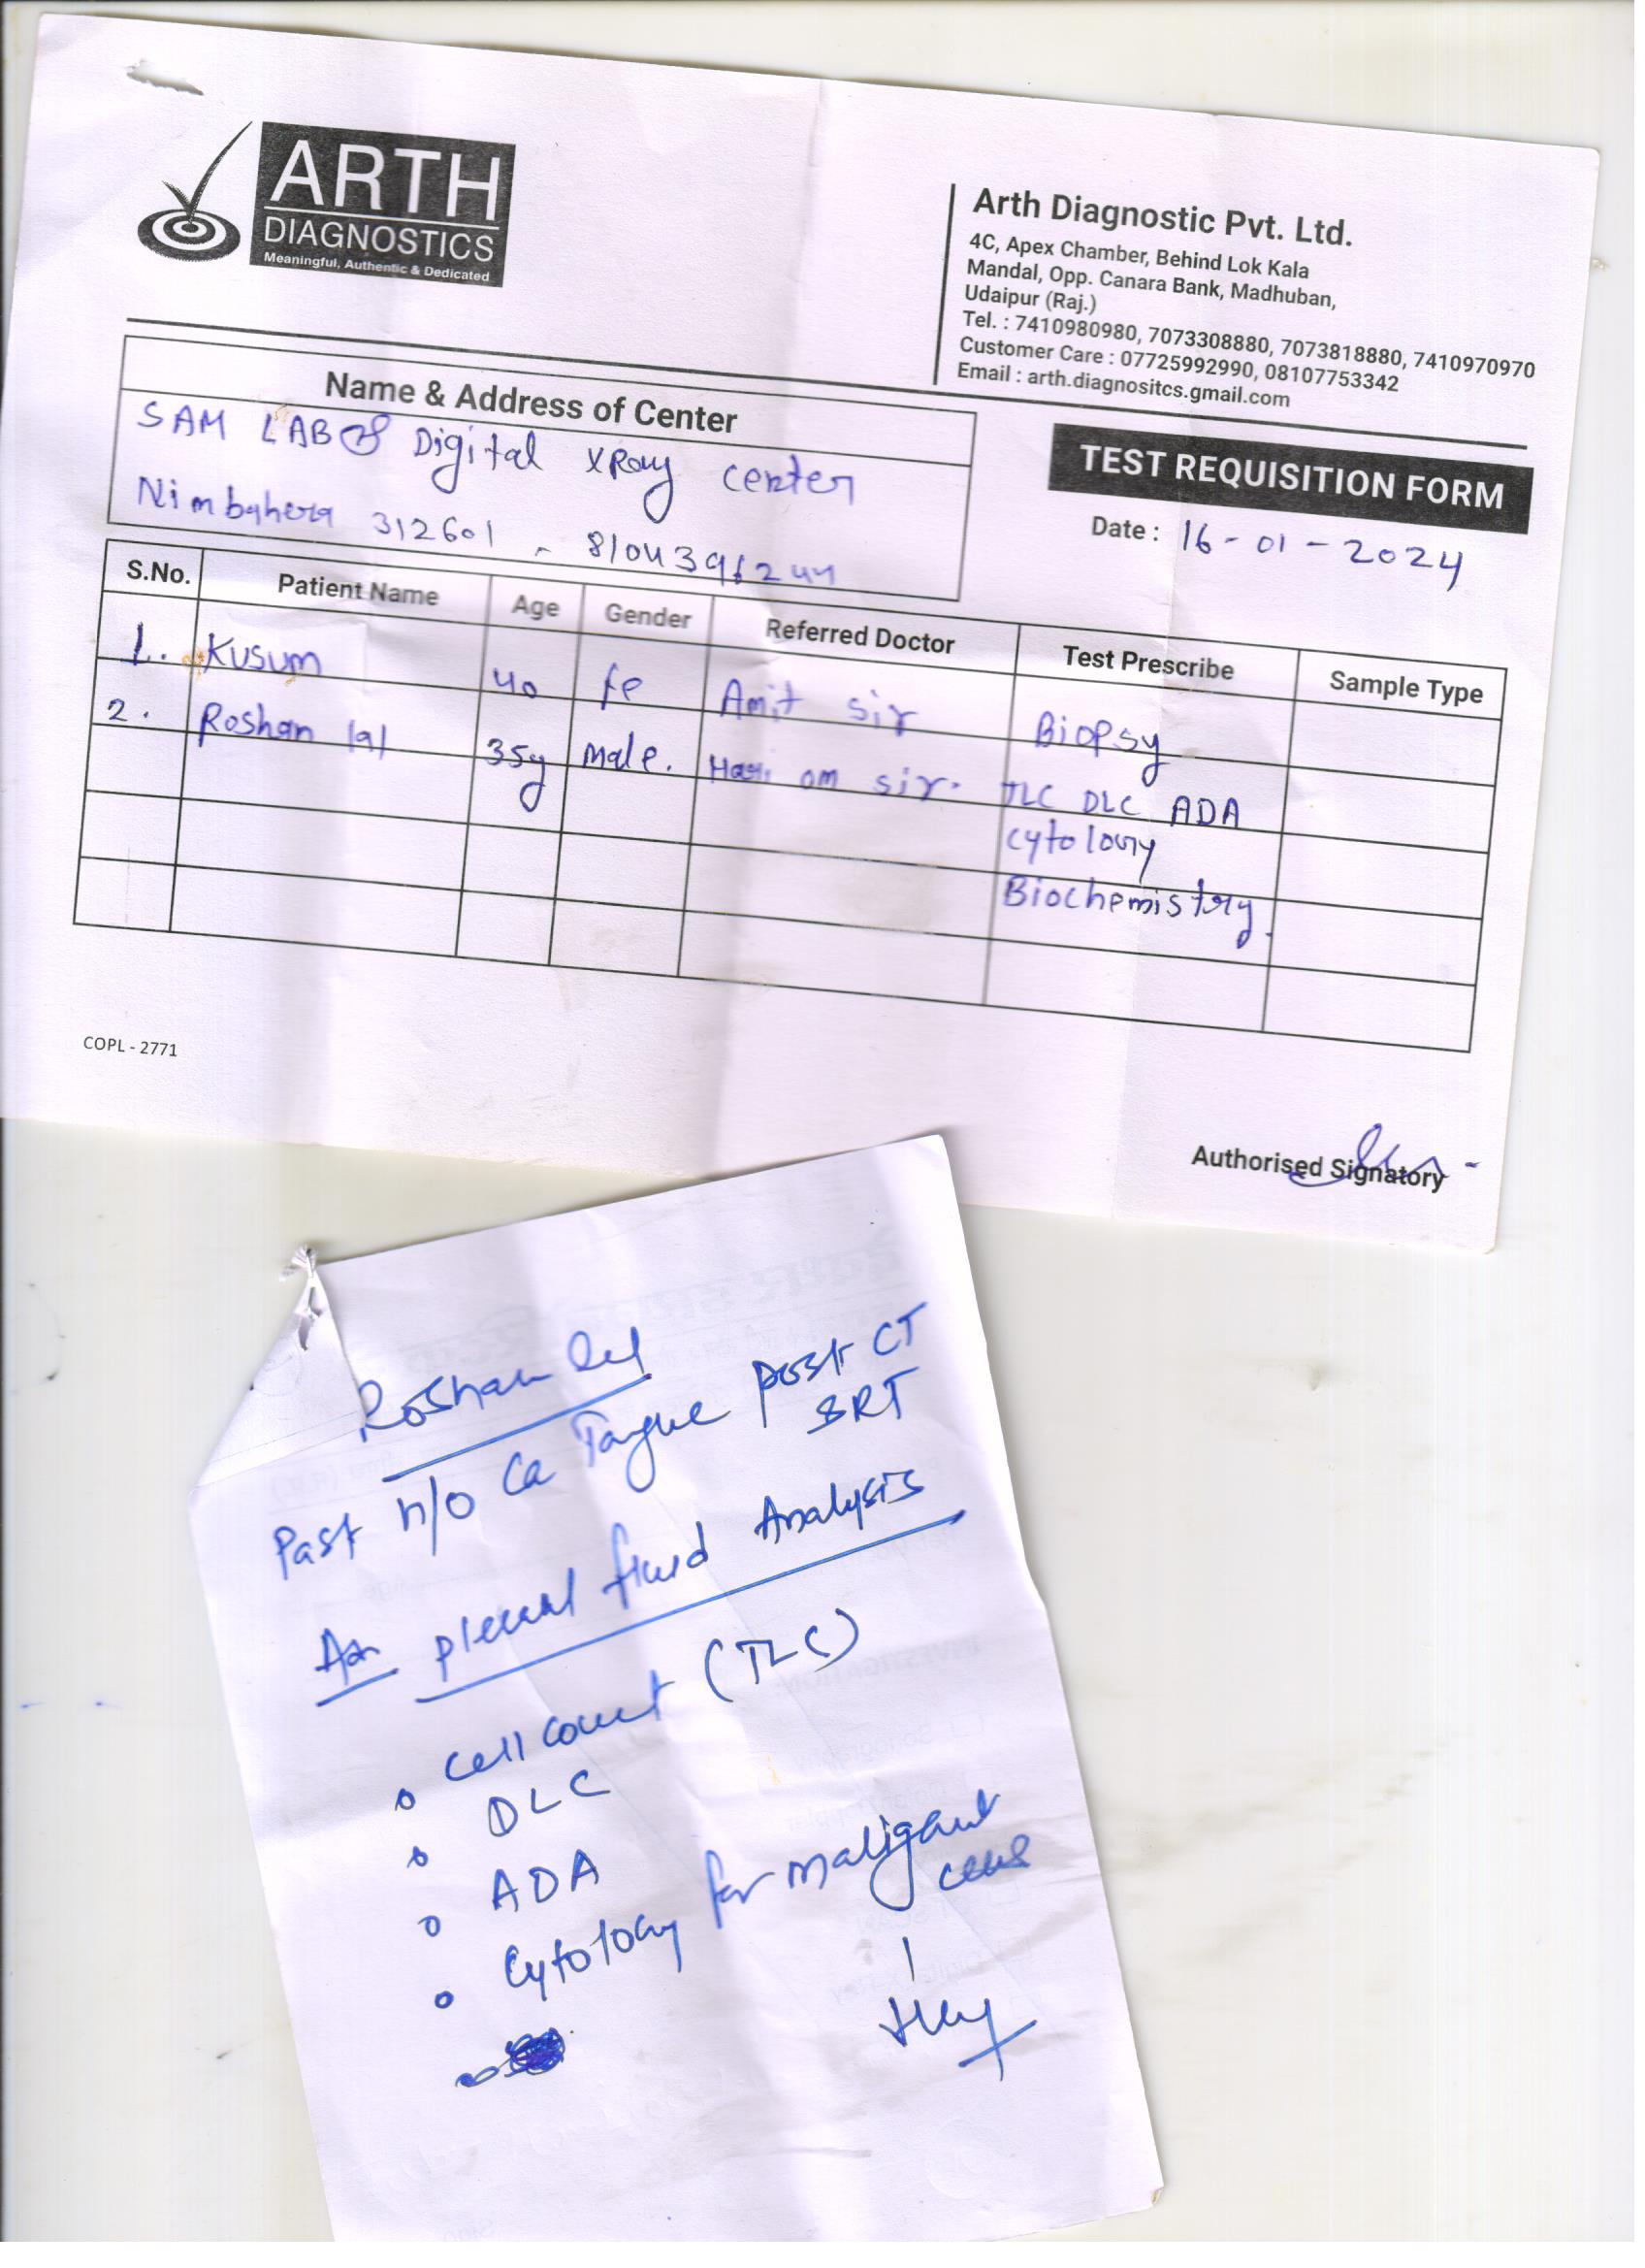 ARTH
DIAGNOSTICS
Meaningful, Authentic & Dedicated
Arth Diagnostic Pvt. Ltd.
4C, Apex Chamber, Behind Lok Kala
Mandal, Opp. Canara Bank, Madhuban,
Udaipur (Raj.)
Tel. : 7410980980, 7073308880, 7073818880, 7410970970
Customer Care : 07725992990, 08107753342
Email : arth.diagnositcs.gmail.com
Name & Address of Center
SAM LAB & Digital XRay center
Nimbahera 312601 - 8104396244
TEST REQUISITION FORM
Date : 16-01-2024
S.No. Patient Name Age Gender Referred Doctor Test Prescribe Sample Type
1. Kusum 40 fe Amit sir Biopsy
2. Roshan lal 35y male. Hari om sir. TLC DLC ADA
cytology
Biochemistry.
COPL - 2771
Authorised Signatory
Roshan lal
Past h/o Ca Tongue post CT
&RT
pleural fluid Analysis
cell count (TLC)
DLC
ADA
Cytology for maligant
cells